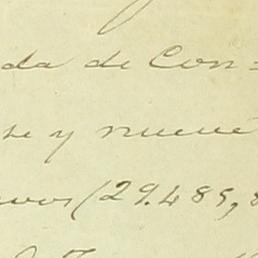 da de Con=
se y nueve
avos (29.485,8